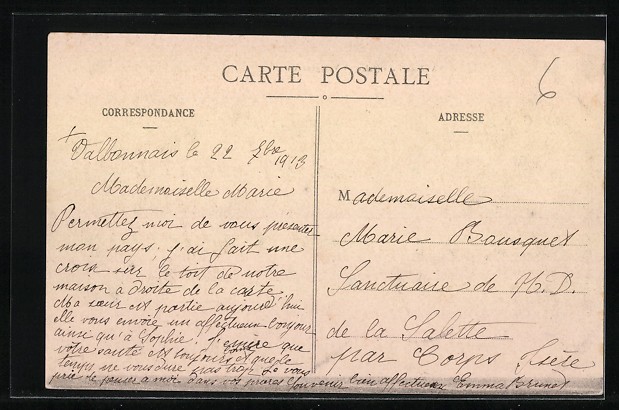 CARTE POSTALE
CORRESPONDANCE
ADRESSE
6
Valbonnais le 22 7bre 1913
Mademoiselle Marie
Permettez moi de vous présenter
mon pays. J'ai fait une
croix sur le toit de notre
maison à droite de la carte.
Ma sœur est partie aujourd'hui
elle vous envoie un affectueux bonjour
ainsi qu'à Sophie. J'espère que
votre santé est toujours et que le
temps ne vous dure pas trop. Je vous
prie de penser a moi dans vos prières Souvenir bien affectueux Emma Brunet
Mademoiselle
Marie Bousquet
Sanctuaire de N. D.
de la Salette
par Corps Isère